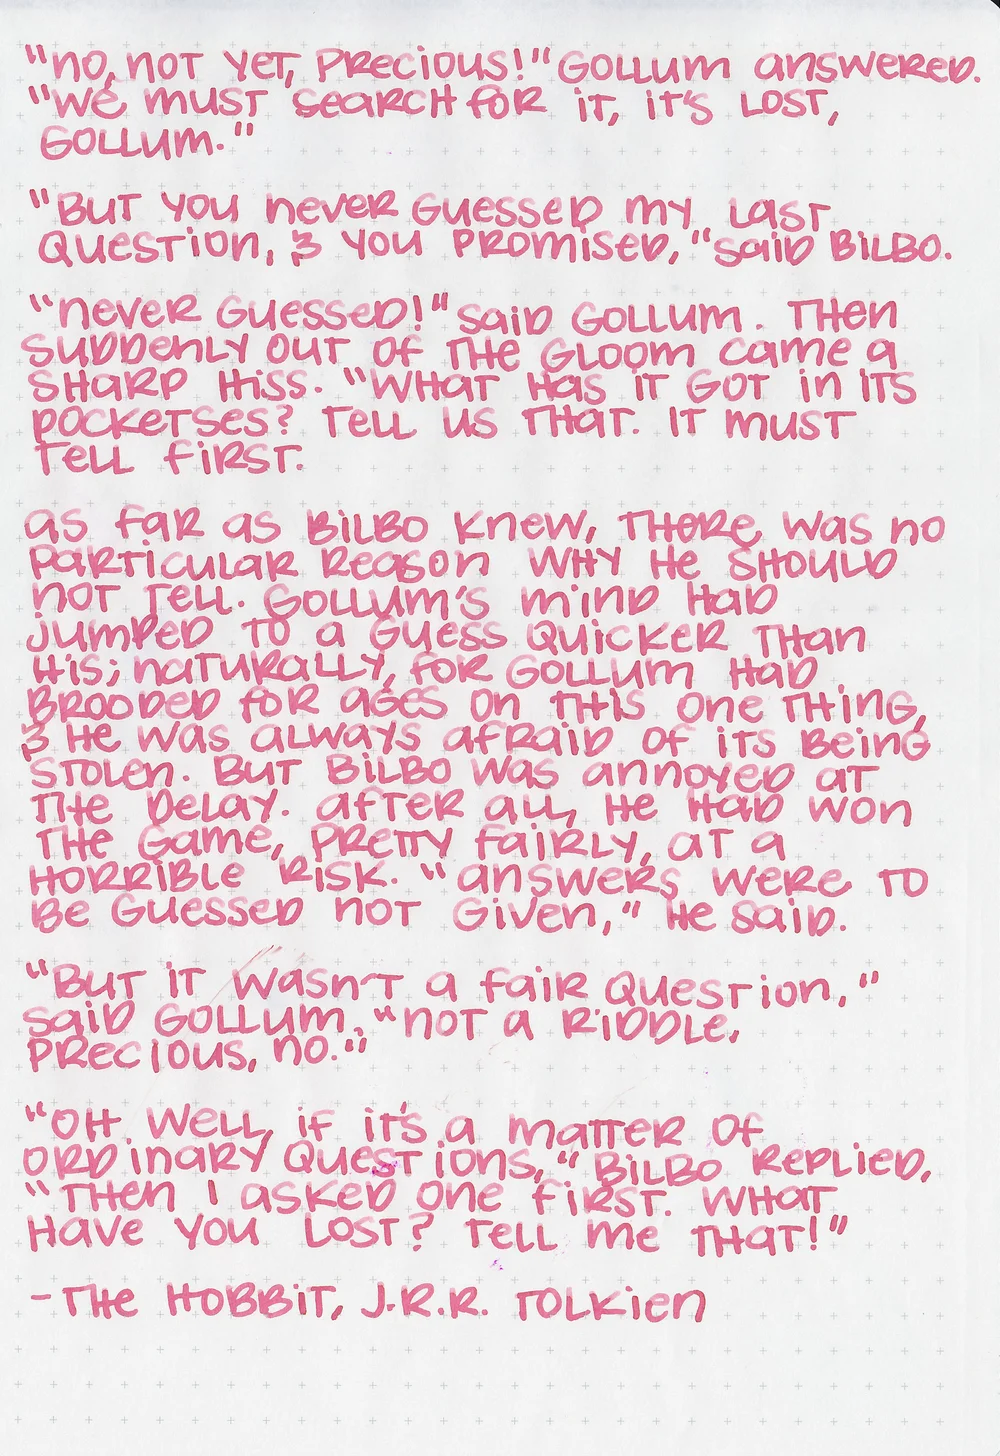 "No, not yet, precious!" Gollum answered.
"We must search for it, it's lost,
Gollum."
"But you never guessed my last
question, & you promised," said Bilbo.
"Never guessed!" said Gollum. Then
suddenly out of the gloom came a
sharp hiss. "What has it got in its
pocketses? Tell us that. It must
tell first.
As far as Bilbo knew, there was no
particular reason why he should
not tell. Gollum's mind had
jumped to a guess quicker than
his; naturally, for Gollum had
brooded for ages on this one thing,
& he was always afraid of its being
stolen. But Bilbo was annoyed at
the delay. After all, he had won
the game, pretty fairly, at a
horrible risk. "Answers were to
be guessed not given," he said.
"But it wasn't a fair question,"
said Gollum. "Not a riddle,
precious, no."
"Oh, well, if it's a matter of
ordinary questions," Bilbo replied,
"Then I asked one first. What
have you lost? Tell me that!"
- The Hobbit, J.R.R. Tolkien